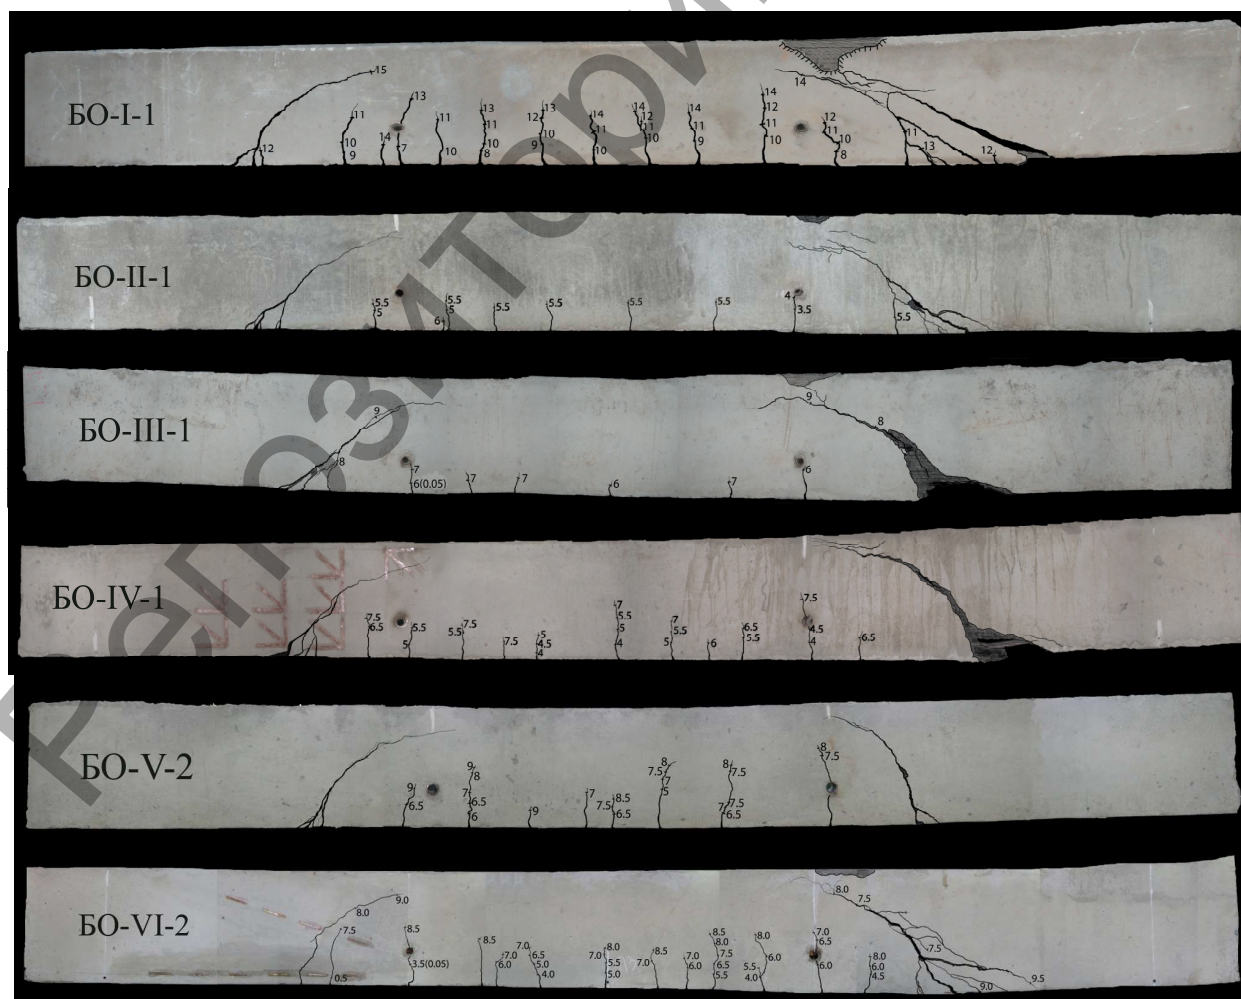 Репозитори
БО-I-1
15
13
11
10
9
12
14
7
11
10
13
11
10
8
13
12
10
9
14
11
10
14
12
11
10
14
11
9
14
12
11
10
14
12
11
10
8
11
13
12
БО-II-1
5.5
5
5.5
5
6
5.5
5.5
5.5
5.5
4
3.5
5.5
БО-III-1
9
8
7
6(0.05)
7
7
6
7
6
9
8
БО-IV-1
7.5
6.5
5.5
5
7.5
5.5
7.5
5
4.5
4
7
5.5
5
4
7
5.5
5
6
6.5
5.5
7.5
4.5
4
6.5
БО-V-2
9
6.5
9
8
7
6.5
6
9
7
7.5
8.5
6.5
8
7.5
7
5
8
7.5
7
7.5
6.5
8
7.5
БО-VI-2
9.0
8.0
7.5
0.5
8.5
3.5(0.05)
8.5
7.0
6.0
7.0
6.5
5.0
4.0
8.0
7.0
5.5
5.0
8.5
7.0
7.0
6.0
8.5
8.0
7.5
6.5
5.5
8.0
6.0
5.5
4.0
7.0
6.5
6.0
8.0
6.0
4.5
8.0
7.5
7.5
9.0
9.5